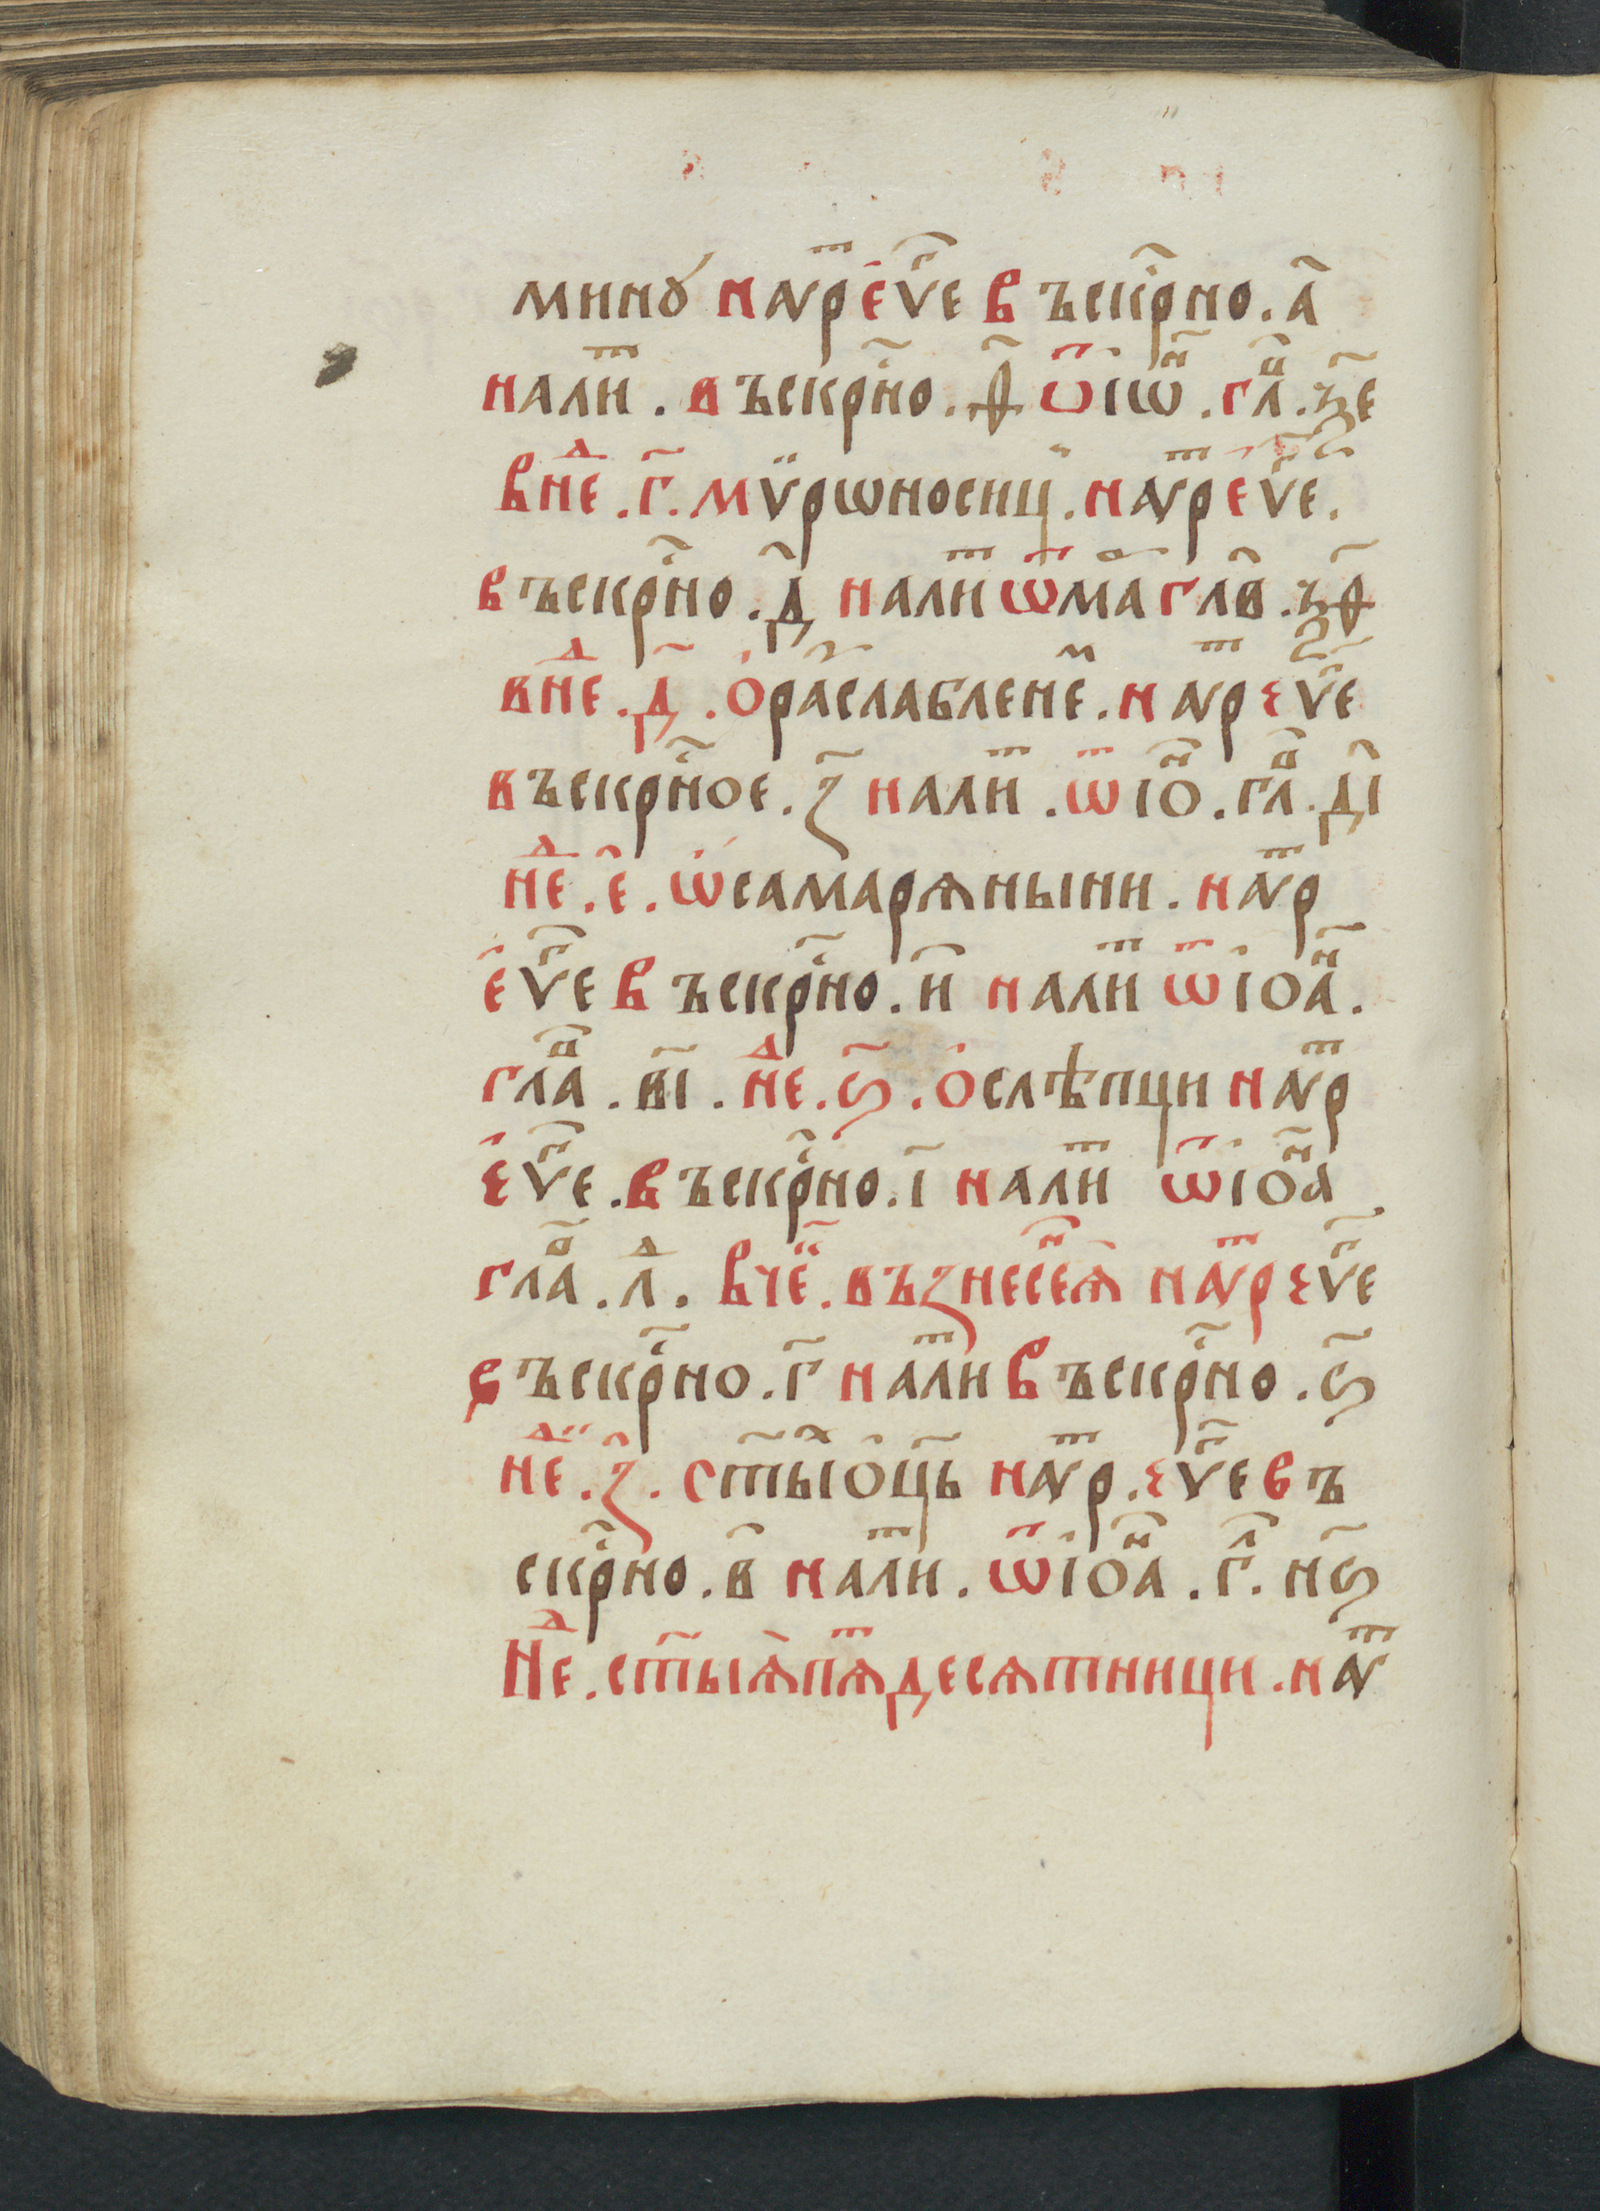 минꙋ наꙋⷮр̾ еѵⷢ҇е въскрⷭ҇но . а҃
налиⷮ . въскрⷭ҇но . ѳ҃ ѿ іѡⷩ҇ . глⷡ҇ . ч҃е
в неⷣ . г҃ . мѵ̈рѡносиц̾ . наꙋⷮр еѵⷢ҇е .
въскрⷭ҇но . д҃ налиⷮ ѿ маⷴ глⷡ҇ . ч҃ѳ
в неⷣ . д҃ . о раⷥслаблеⷩ҇неⷨ . наꙋⷮр еѵⷢ҇е
въскрⷭ҇ное . з҃ налиⷮ . ѿ іѡⷩ҇ . глⷡ҇ . д҃і
неⷣ . е҃ . ѡ самарѧныни . наꙋⷮр
еѵⷢ҇е въскрⷭ҇но . и҃ налиⷮ ѿ іоаⷩ҇ .
глаⷡ҇ . в҃і . неⷣ . ѕ҃ . о слѣпци наꙋⷮр
еѵⷢ҇е . въскрⷭ҇но . і҃ налиⷮ ѿ іоаⷩ҇
глаⷡ҇ . л҃д . в чеⷦ҇ . възнесеⷩ҇ѧ наꙋⷮр еѵⷢ҇е
въскрⷭ҇но . г҃ налиⷮ въскрⷭ҇но . ѕ҃
неⷣ . з҃ . ст҃ыⷯ оц҃ь наꙋⷮр . еѵⷢ҇е въ
скрⷭ҇но . в҃ налиⷮ . ѿ іоаⷩ҇ . гⷧ҇ . н҃ѕ
Неⷣ . ст҃ыѧ пѧⷮдесѧтници . наꙋⷮ